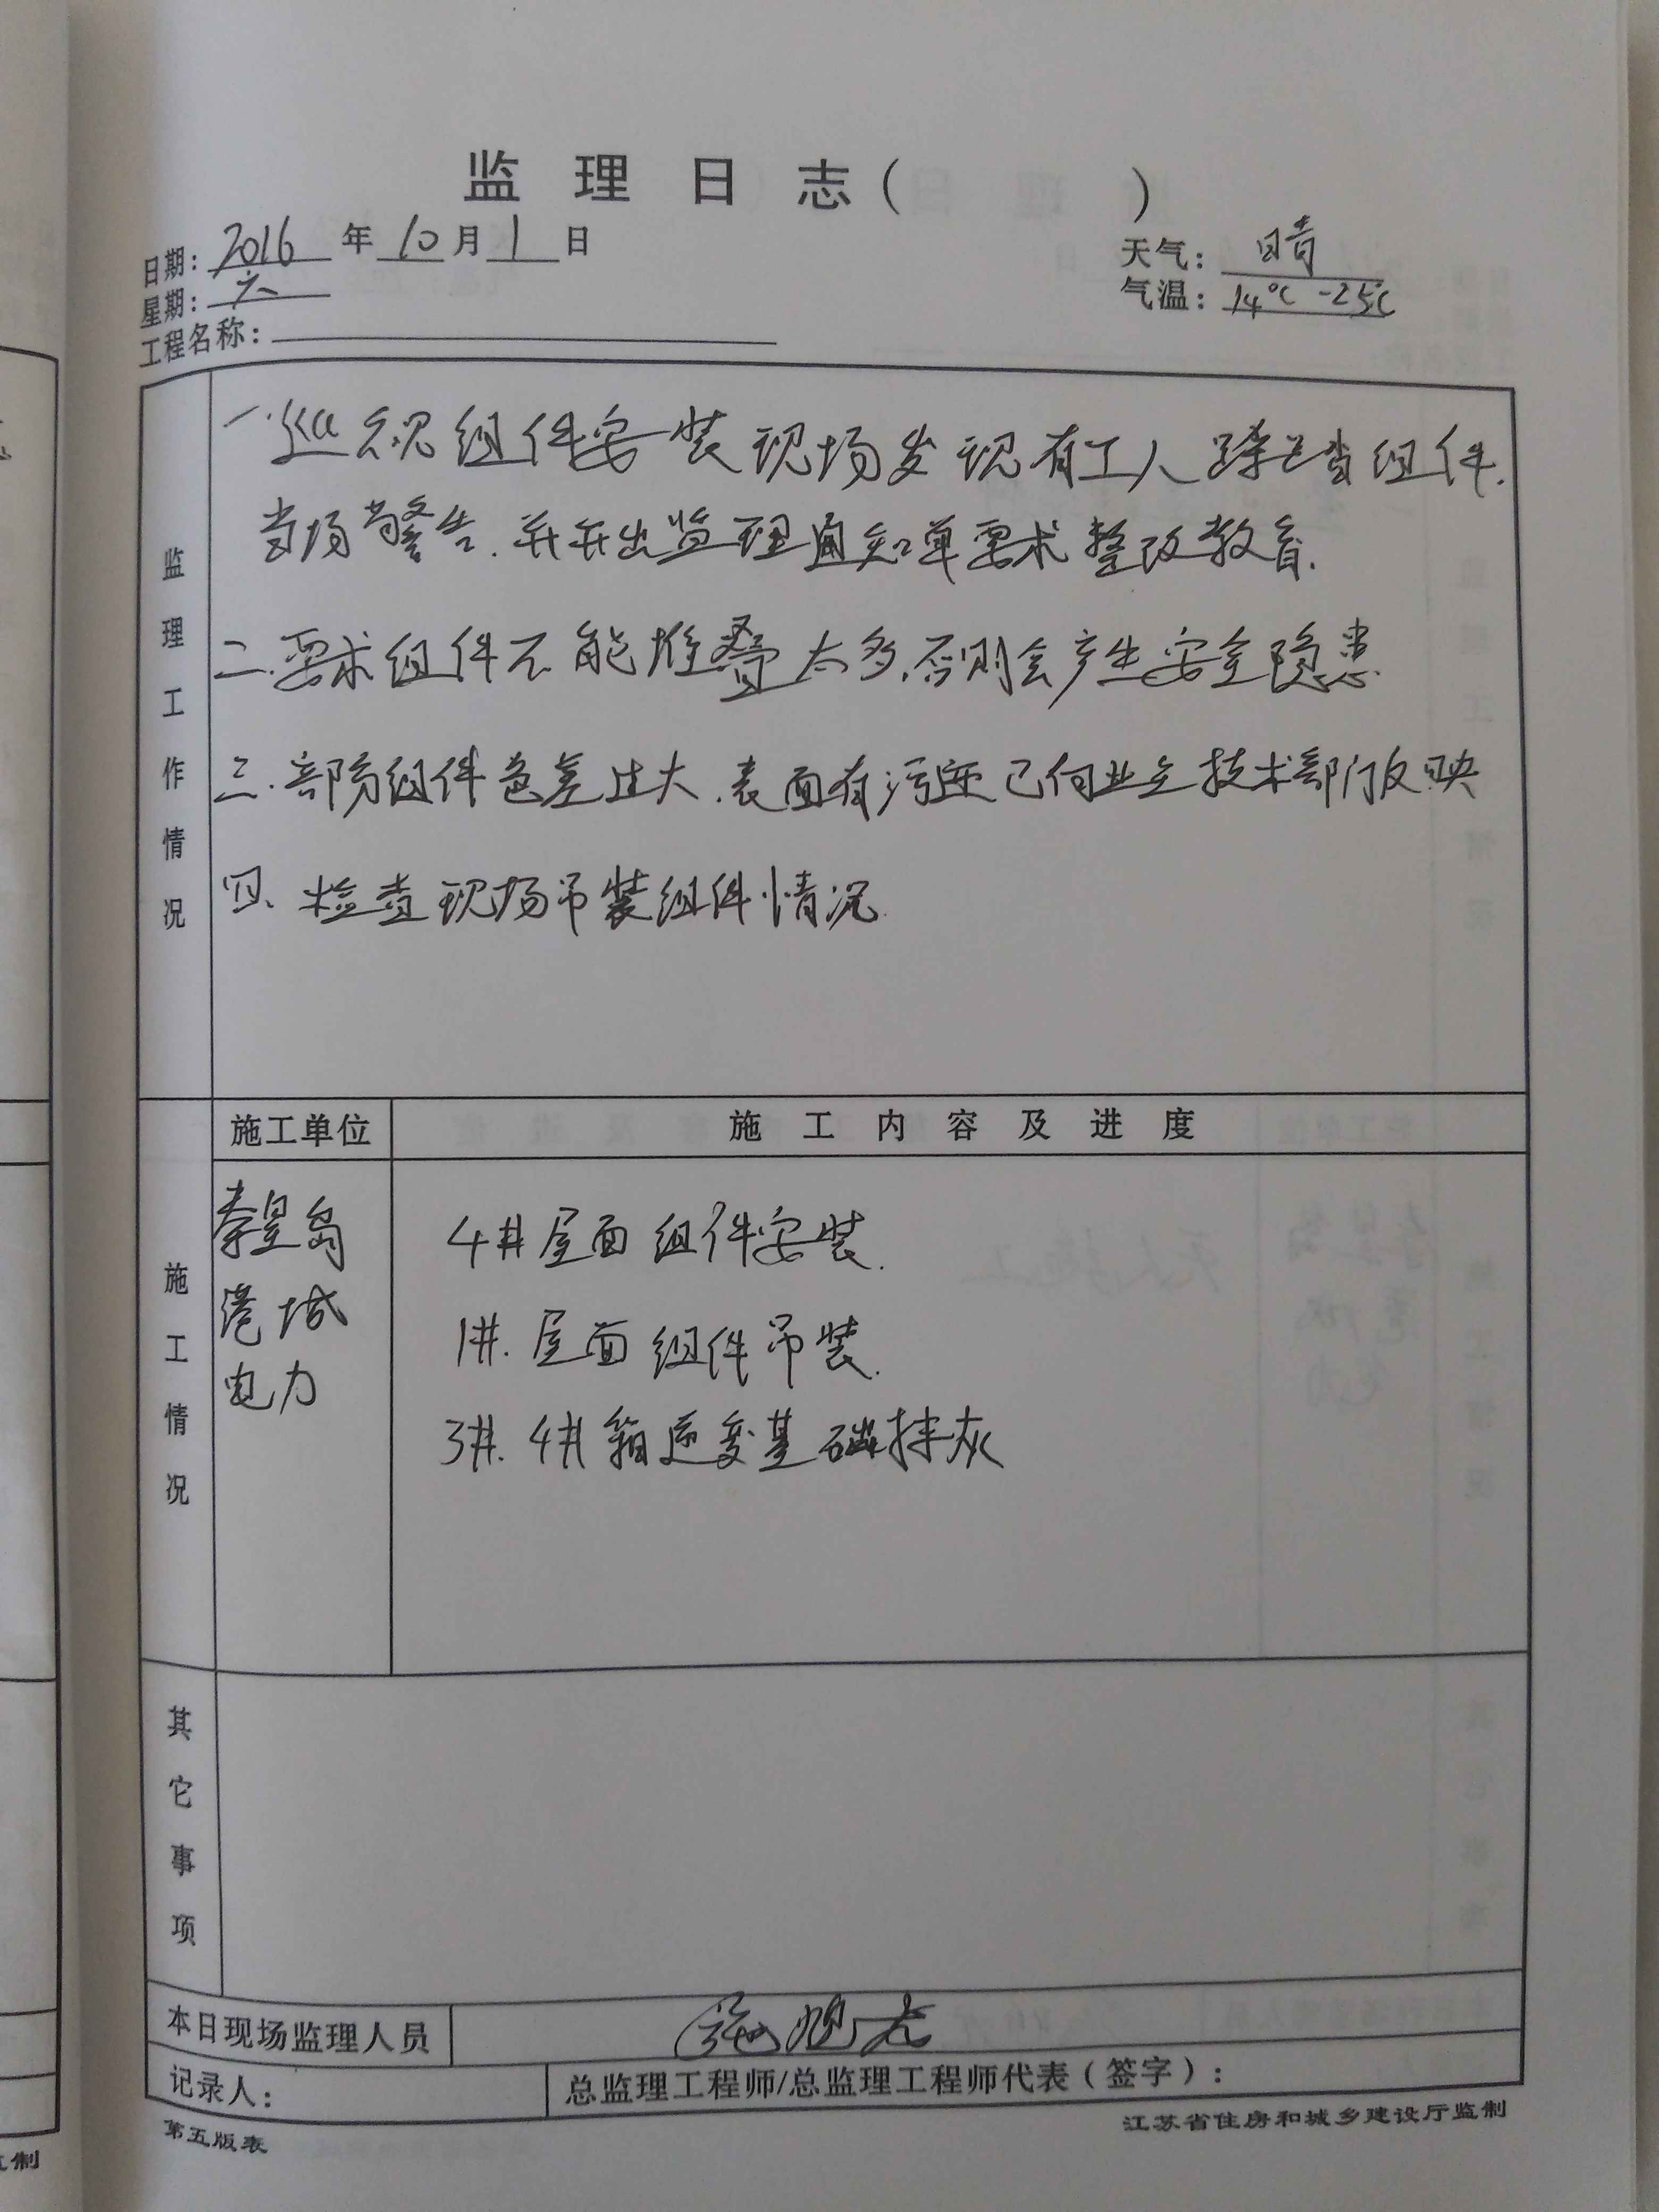 监理日志（ ）
日期：2016年10月1日
天气：晴
星期：六
气温：14℃-25℃
工程名称：
监理工作情况
一.巡视组件安装现场发现有工人踩踏组件.
当场警告.并开出监理通知单要求整改教育.
二.要求组件不能堆叠太多.否则会产生安全隐患
三.部分组件色差过大.表面有污迹已向业主技术部门反映
四、检查现场吊装组件情况.
施工情况
施工单位
施工内容及进度
秦皇岛
港城
电力
4#屋面组件安装.
1#.屋面组件吊装.
3#.4#箱逆变基础抹灰
其它事项
本日现场监理人员
记录人：
总监理工程师/总监理工程师代表（签字）：
第五版表
江苏省住房和城乡建设厅监制
监制